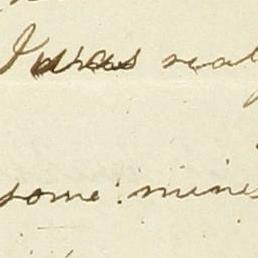 I was real
some mines